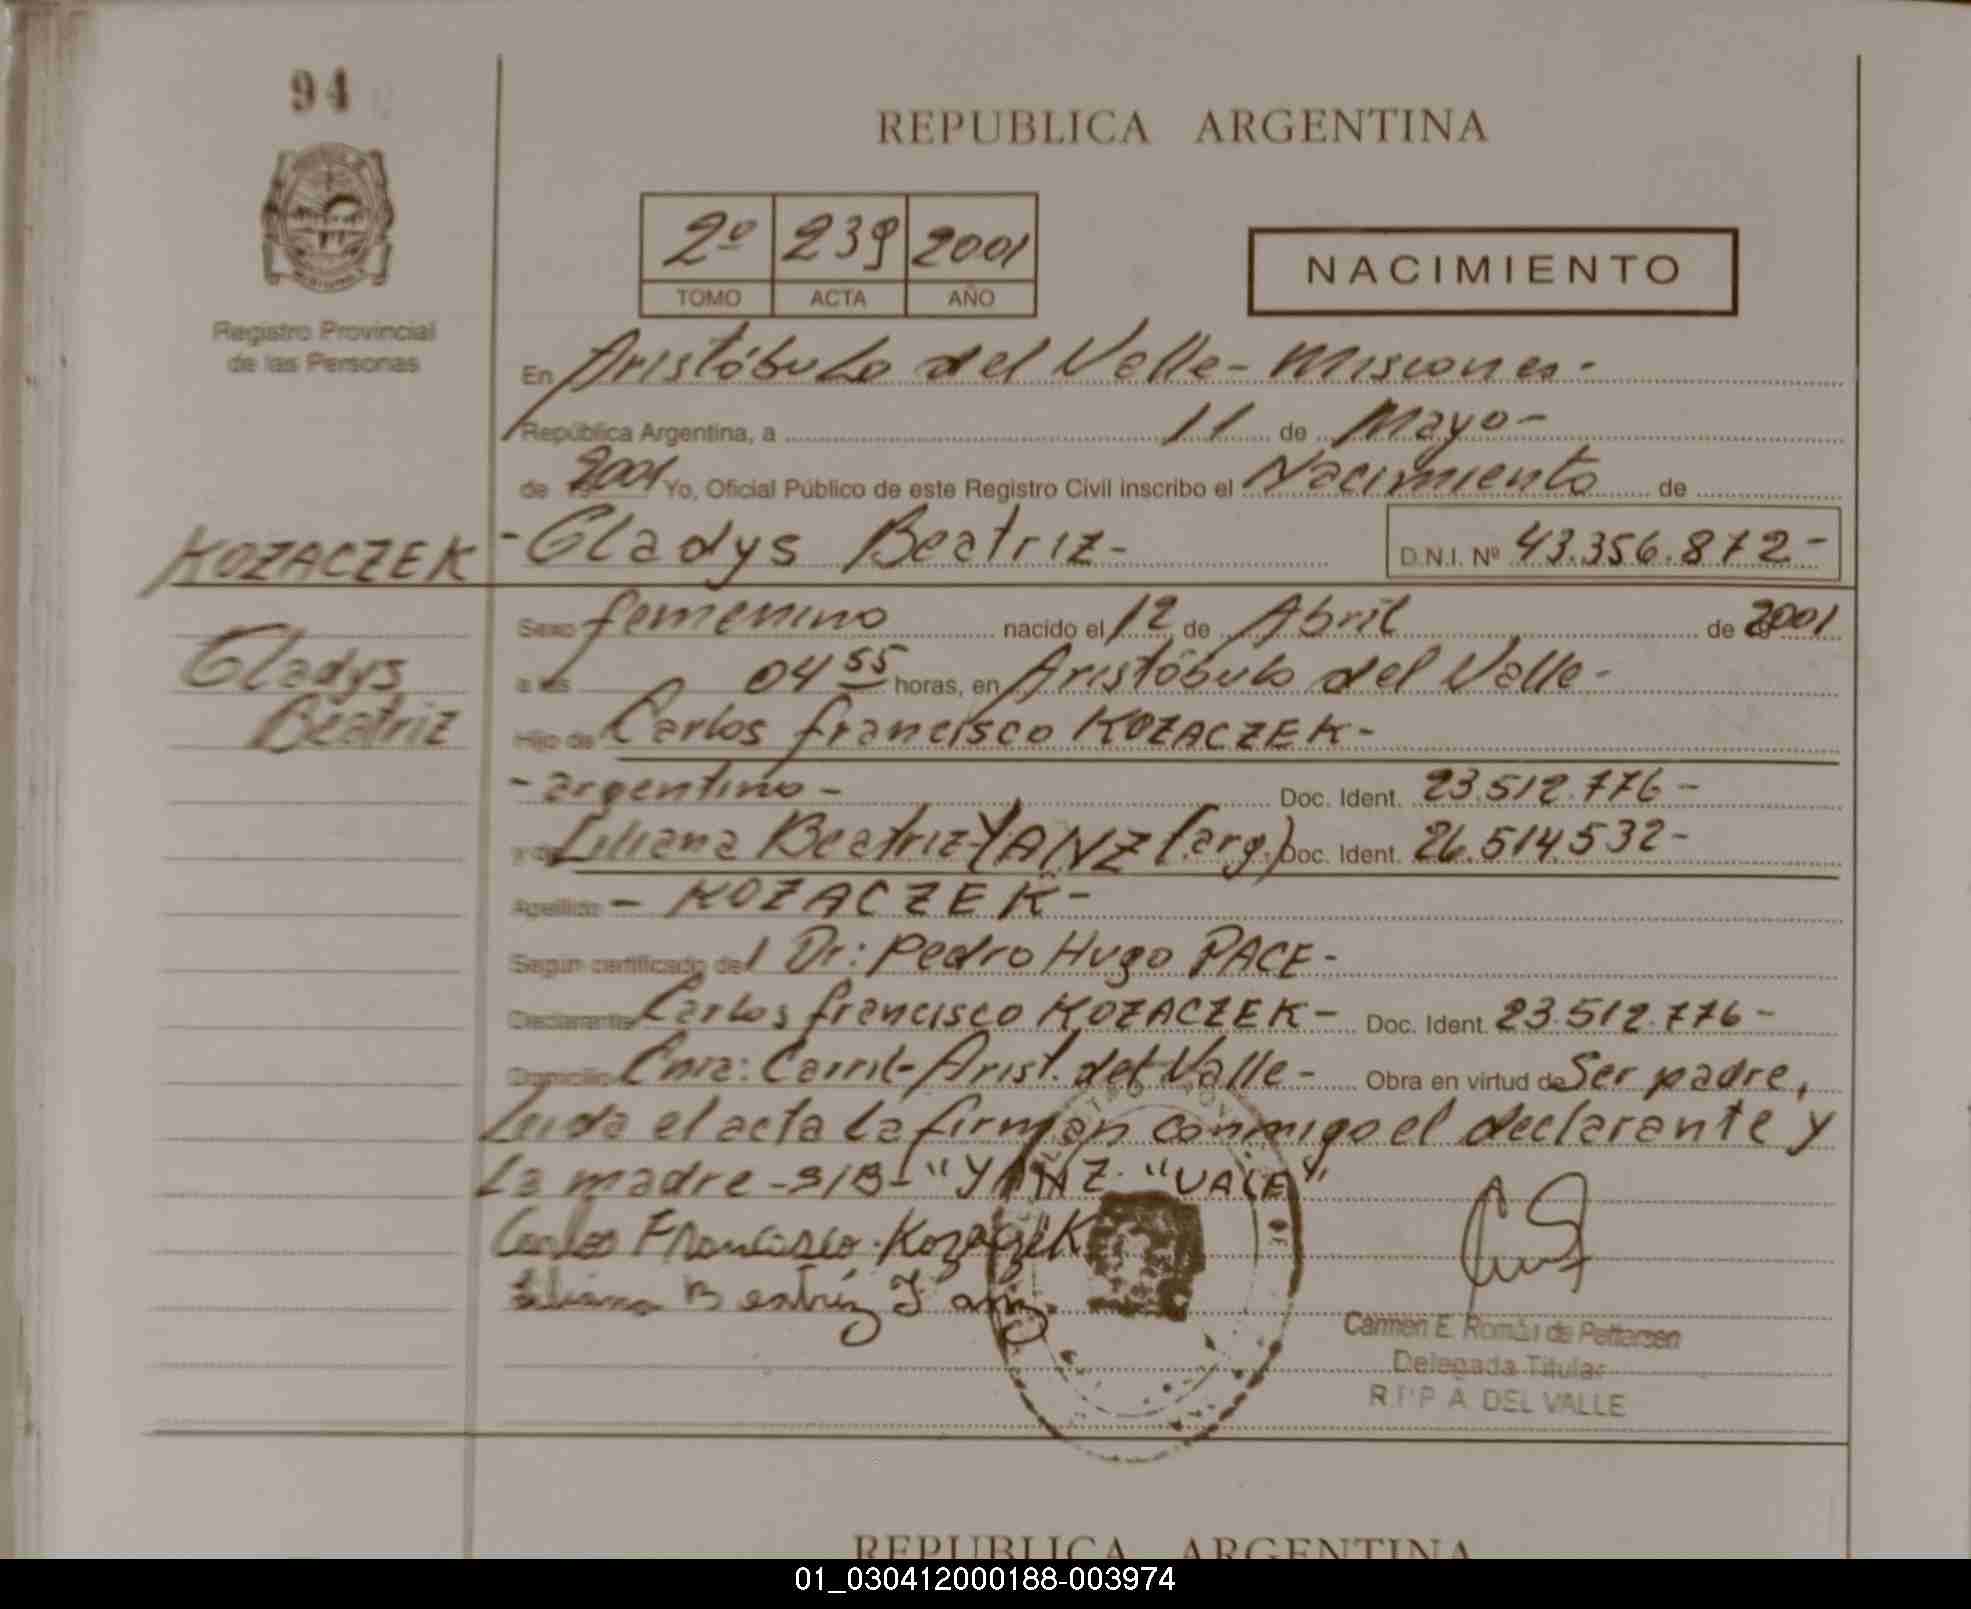 94
REPUBLICA ARGENTINA
2º 239 2001
TOMO ACTA AÑO
NACIMIENTO
Registro Provincial
de las Personas
En Aristóbulo del Valle - Misiones -
República Argentina, a 11 de Mayo -
de 2001 Yo, Oficial Público de este Registro Civil inscribo el Nacimiento de
KOZACZEK - Gladys Beatriz - D.N.I. Nº 43.356.872 -
Gladys
Beatriz
Sexo femenino nacido el 12 de Abril de 2001
a las 04 55 horas, en Aristóbulo del Valle -
Hijo de Carlos francisco KOZACZEK -
- argentino - Doc. Ident. 23.512.776 -
y de Liliana Beatriz YANZ (arg.) Doc. Ident. 26.514.532 -
Apellido - KOZACZEK -
Según certificado del Dr: Pedro Hugo PACE -
Declarante Carlos francisco KOZACZEK - Doc. Ident. 23.512.776 -
Domicilio Arist. del Valle - Obra en virtud de Ser padre,
Leida el acta la firman conmigo el declarante y
La madre - S/B - "YANZ" "VALE"
Carlos Francisco Kozaczek
Liliana Beatriz Yanz
Carmen E. Román de Pettersen
Delegada Titular
R.P.P A. DEL VALLE
REPUBLICA ARGENTINA
01_030412000188-003974